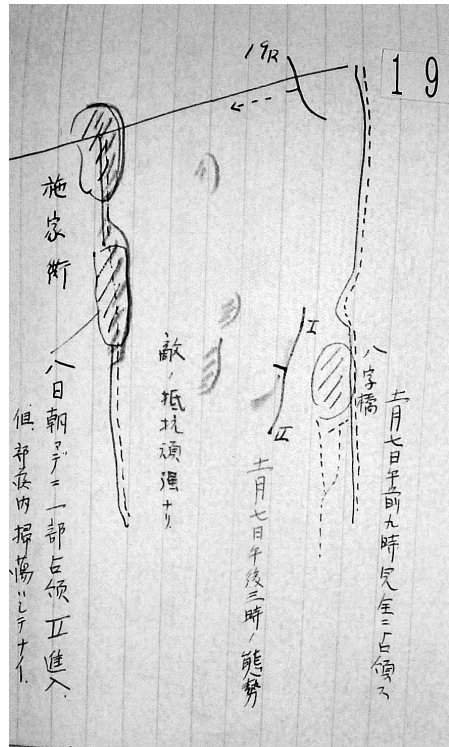 19
19R
八字橋
十一月七日午前九時完全ニ占領ス
I
II
十一月七日午後三時ノ態勢
敵ノ抵抗頑強ナリ
施家衖
八日朝マデニ一部占領 II 進入.
但シ部落内掃蕩ハシテナイ.